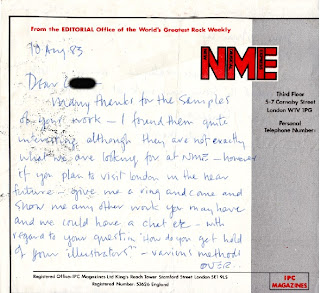 From the EDITORIAL Office of the World's Greatest Rock Weekly
NME
Third Floor
5-7 Carnaby Street
London W1V 1PG
Personal
Telephone Number:
10 Aug 83
Dear
Many thanks for the samples
of your work - I found them quite
interesting although they are not exactly
what we are looking for at NME - however
if you plan to visit London in the near
future - give me a ring and come and
show me any other work you may have
and we could have a chat etc - with
regard to your question "How do you get hold
of your illustrators" - various methods
OVER...
Registered Office: IPC Magazines Ltd King's Reach Tower Stamford Street London SE1 9LS
Registered Number: 53626 England
IPC
MAGAZINES